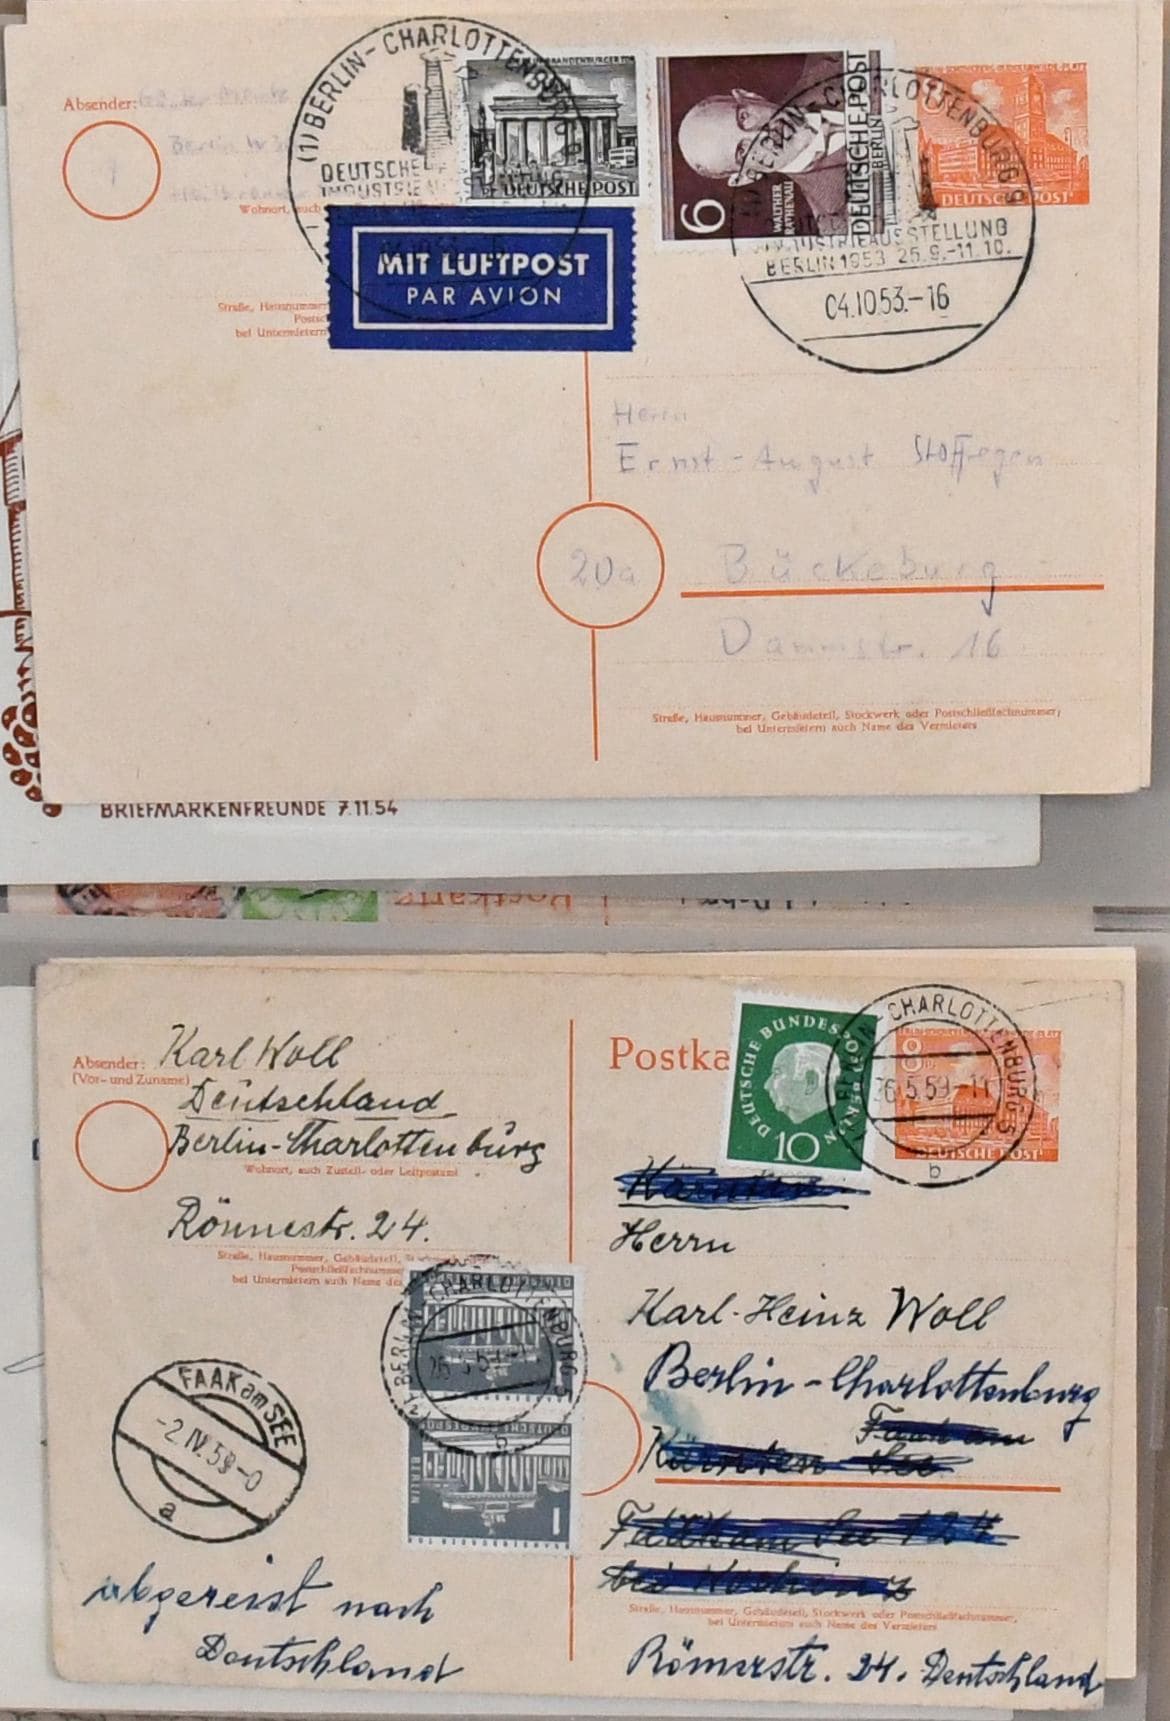 Absender:
Berlin W
Wohnort, auch
Straße, Hausnummer
Postsc
bei Untermietern
(1) BERLIN-CHARLOTTENBURG 9
DEUTSCHE
INDUSTRIE
BRANDENBURGER TOR
DEUTSCHE POST
MIT LUFTPOST
PAR AVION
6
WALTHER RATHENAU
DEUTSCHE POST
BERLIN
DEUTSCHE POST
(1) BERLIN-CHARLOTTENBURG 9
INDUSTRIEAUSSTELLUNG
BERLIN 1953 26.9.-11.10.
04.10.53.-16
Herrn
Ernst-August Stoffregen
20a
Bückeburg
Dammstr. 16
Straße, Hausnummer, Gebäudeteil, Stockwerk oder Postschließfachnummer;
bei Untermietern auch Name des Vermieters
BRIEFMARKENFREUNDE 7.11.54
Postkarte
Absender:
(Vor- und Zuname)
Karl Woll
Deutschland
Berlin-Charlottenburg
Wohnort, auch Zustell- oder Leitpostamt
Rönnestr. 24.
Straße, Hausnummer, Gebäudeteil,
Postschließfachnummer
bei Untermietern auch Name des
Postka
DEUTSCHE BUNDESPOST BERLIN
10
8
DEUTSCHE POST
BERLIN-CHARLOTTENBURG 5
26.5.59-11
b
Kärnten
Herrn
Karl-Heinz Woll
Berlin-Charlottenburg
Faak am
Kärnten See
Faak am See 124
Straße, Hausnummer, Gebäudeteil, Stockwerk oder Postschließfachnummer,
bei Untermietern auch Name des Vermieters
Römerstr. 24. Deutschland
BERLIN-CHARLOTTENBURG 5
b
BERLIN
1
FAAK am SEE
-2.IV.59-0
a
abgereist nach
Deutschland